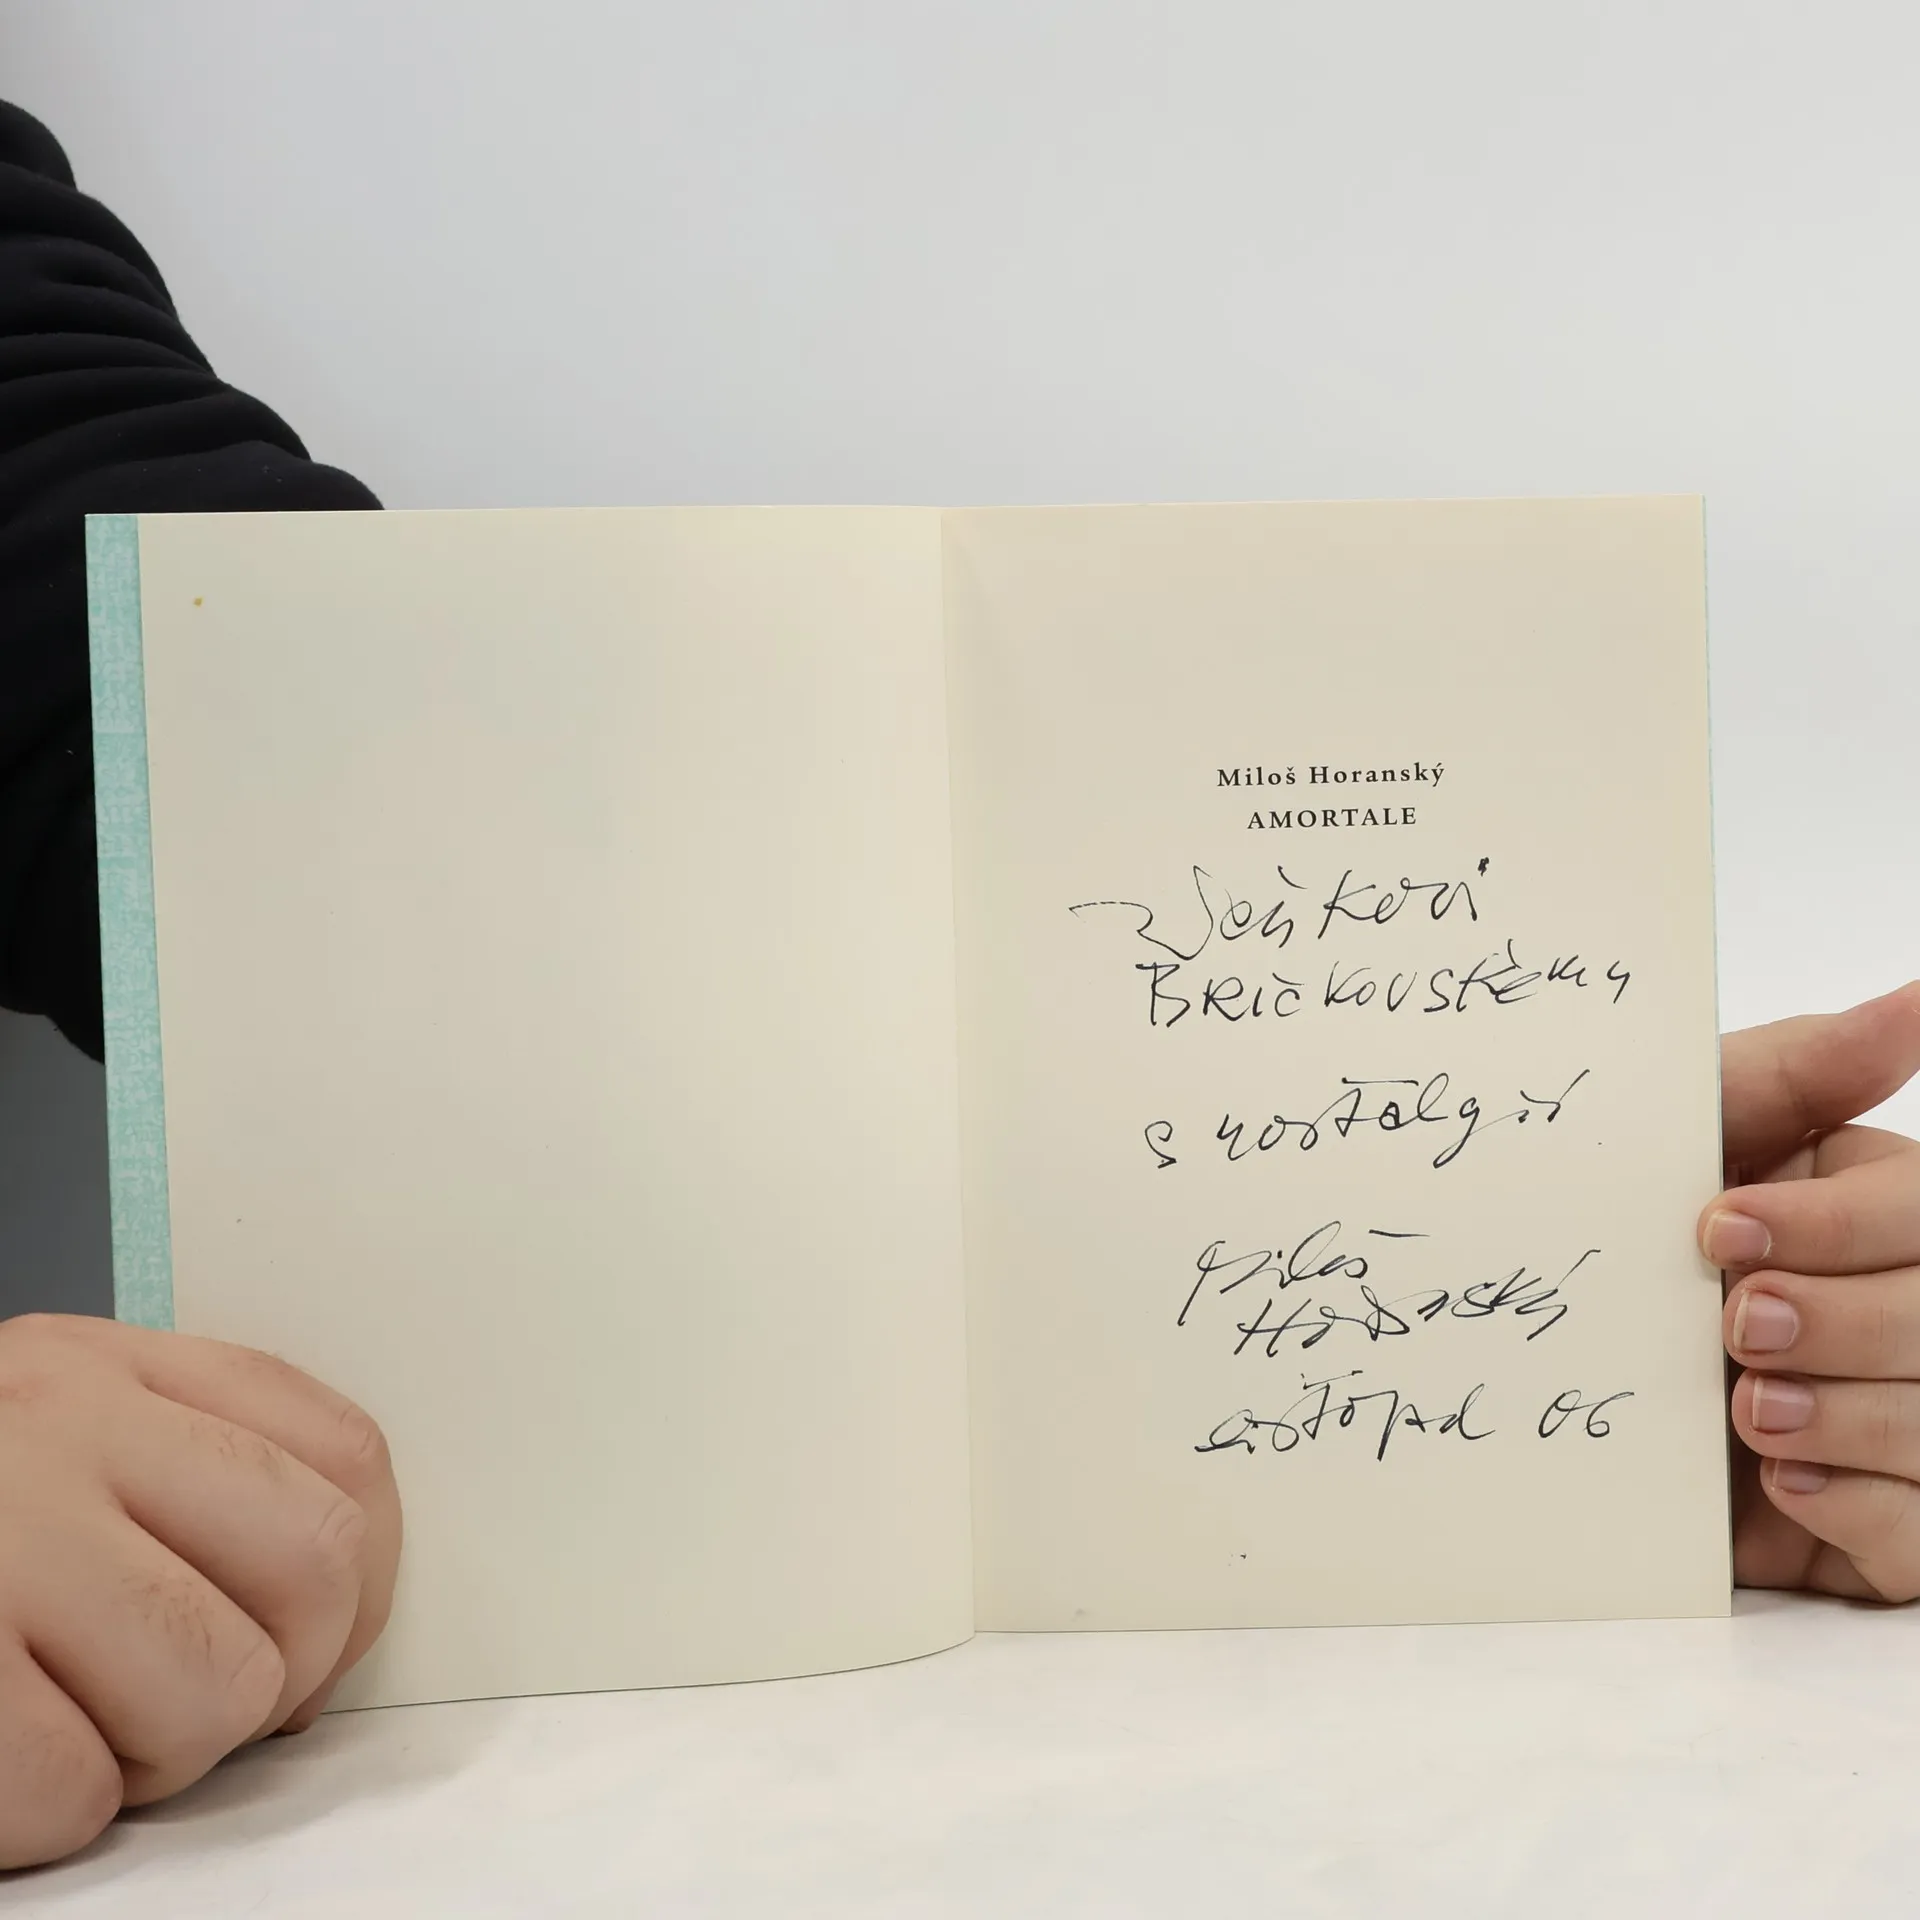 Miloš Horanský
AMORTALE
BRičkovskému
s nostalgií
Miloš
Horanský
listopad 06